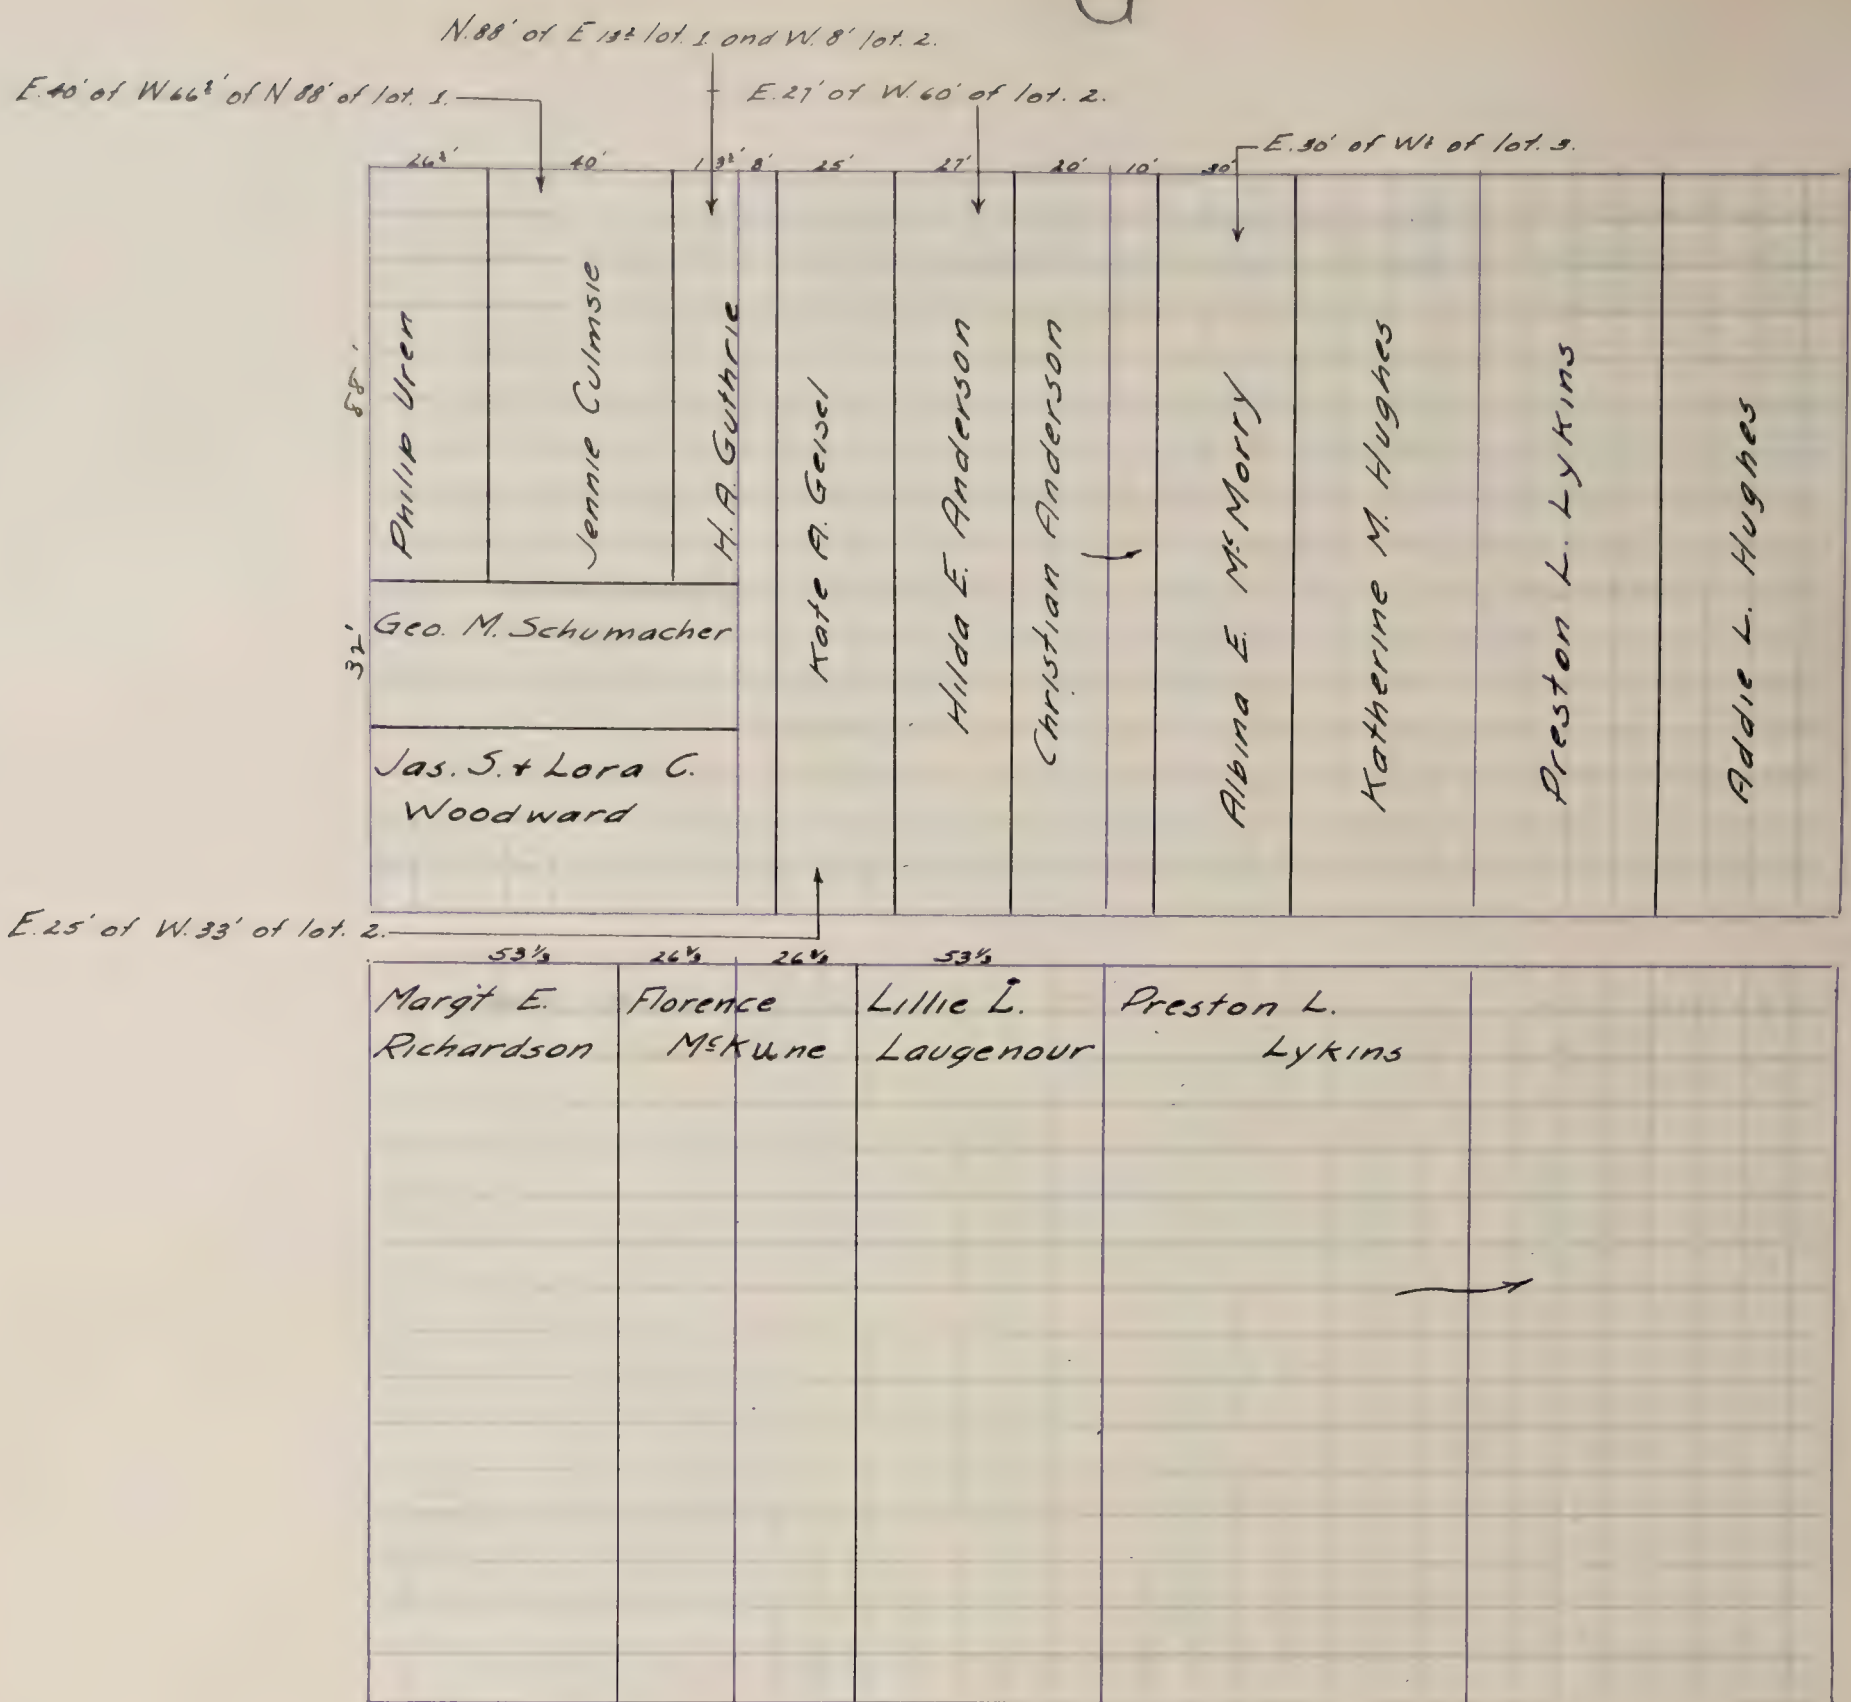 N.88' of E 13½ lot. 1 and W. 8' lot. 2.
E.40' of W 66½' of N 88' of lot. 1.
E.27' of W.60' of lot. 2.
E.30' of W½ of lot. 3.
26½' 40' 13½' 8' 25' 27' 20' 10' 30'
88'
32'
Philip Uren
Jennie Culmsie
H. A. Guthrie
Kate A. Geisel
Hilda E. Anderson
Christian Anderson
Albina E. McMorry
Katherine M. Hughes
Preston L. Lykins
Addie L. Hughes
Geo. M. Schumacher
Jas. S. + Lora C.
Woodward
E.25' of W.33' of lot. 2.
53⅓ 26⅔ 26⅔ 53⅓
Marg't E.
Richardson
Florence
McKune
Lillie L.
Laugenour
Preston L.
Lykins